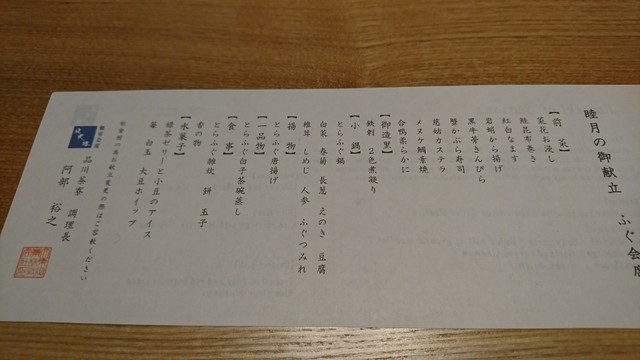 睦月の御献立　ふぐ会席
【前菜】
菜花お浸し
鮭昆布巻き
紅白なます
岩蛸から揚げ
黒牛蒡きんぴら
蟹かぶら寿司
慈姑カステラ
メヌケ鯛素焼
合鴨柔らかに
【御造里】
鉄刺　2色煮凝り
【小鍋】
とらふぐ鍋
白菜　春菊　長葱　えのき　豆腐
椎茸　しめじ　人参　ふぐつみれ
【揚物】
とらふぐ唐揚げ
【一品物】
とらふぐ白子茶碗蒸し
【食事】
とらふぐ雑炊　餅　玉子
香の物
【水菓子】
焙茶ゼリーと小豆のアイス
苺　白玉　大豆ホイップ
品川茶寮　調理長
阿部　裕之